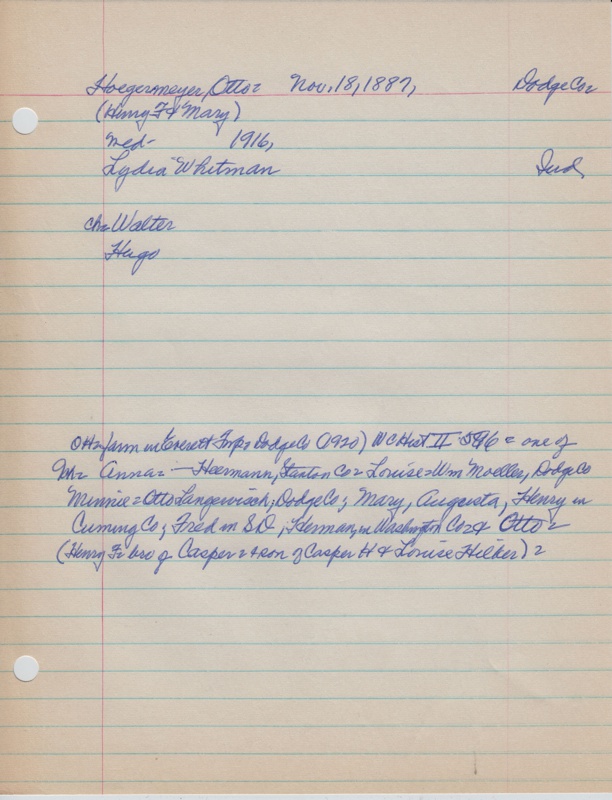 Hoegermeyer, Otto= Nov. 18, 1887, Dodge Co=
(Henry F & Mary)
med- 1916,
Lydia Whitman Ind,
ch= Walter
Hugo
OH= farm in Everett Twp= Dodge Co (1920) WC Hist II = one of
Anna= - Heermann, Stanton Co= Louise= Wm Moeller, Dodge Co
Minnie= Otto Langewisch, Dodge Co; Mary, Augusta, Henry in
Cuming Co; Fred in SD; Herman, in Washington Co= & Otto=
(Henry F= bro of Casper= & son of Casper H & Louise Hilker)=